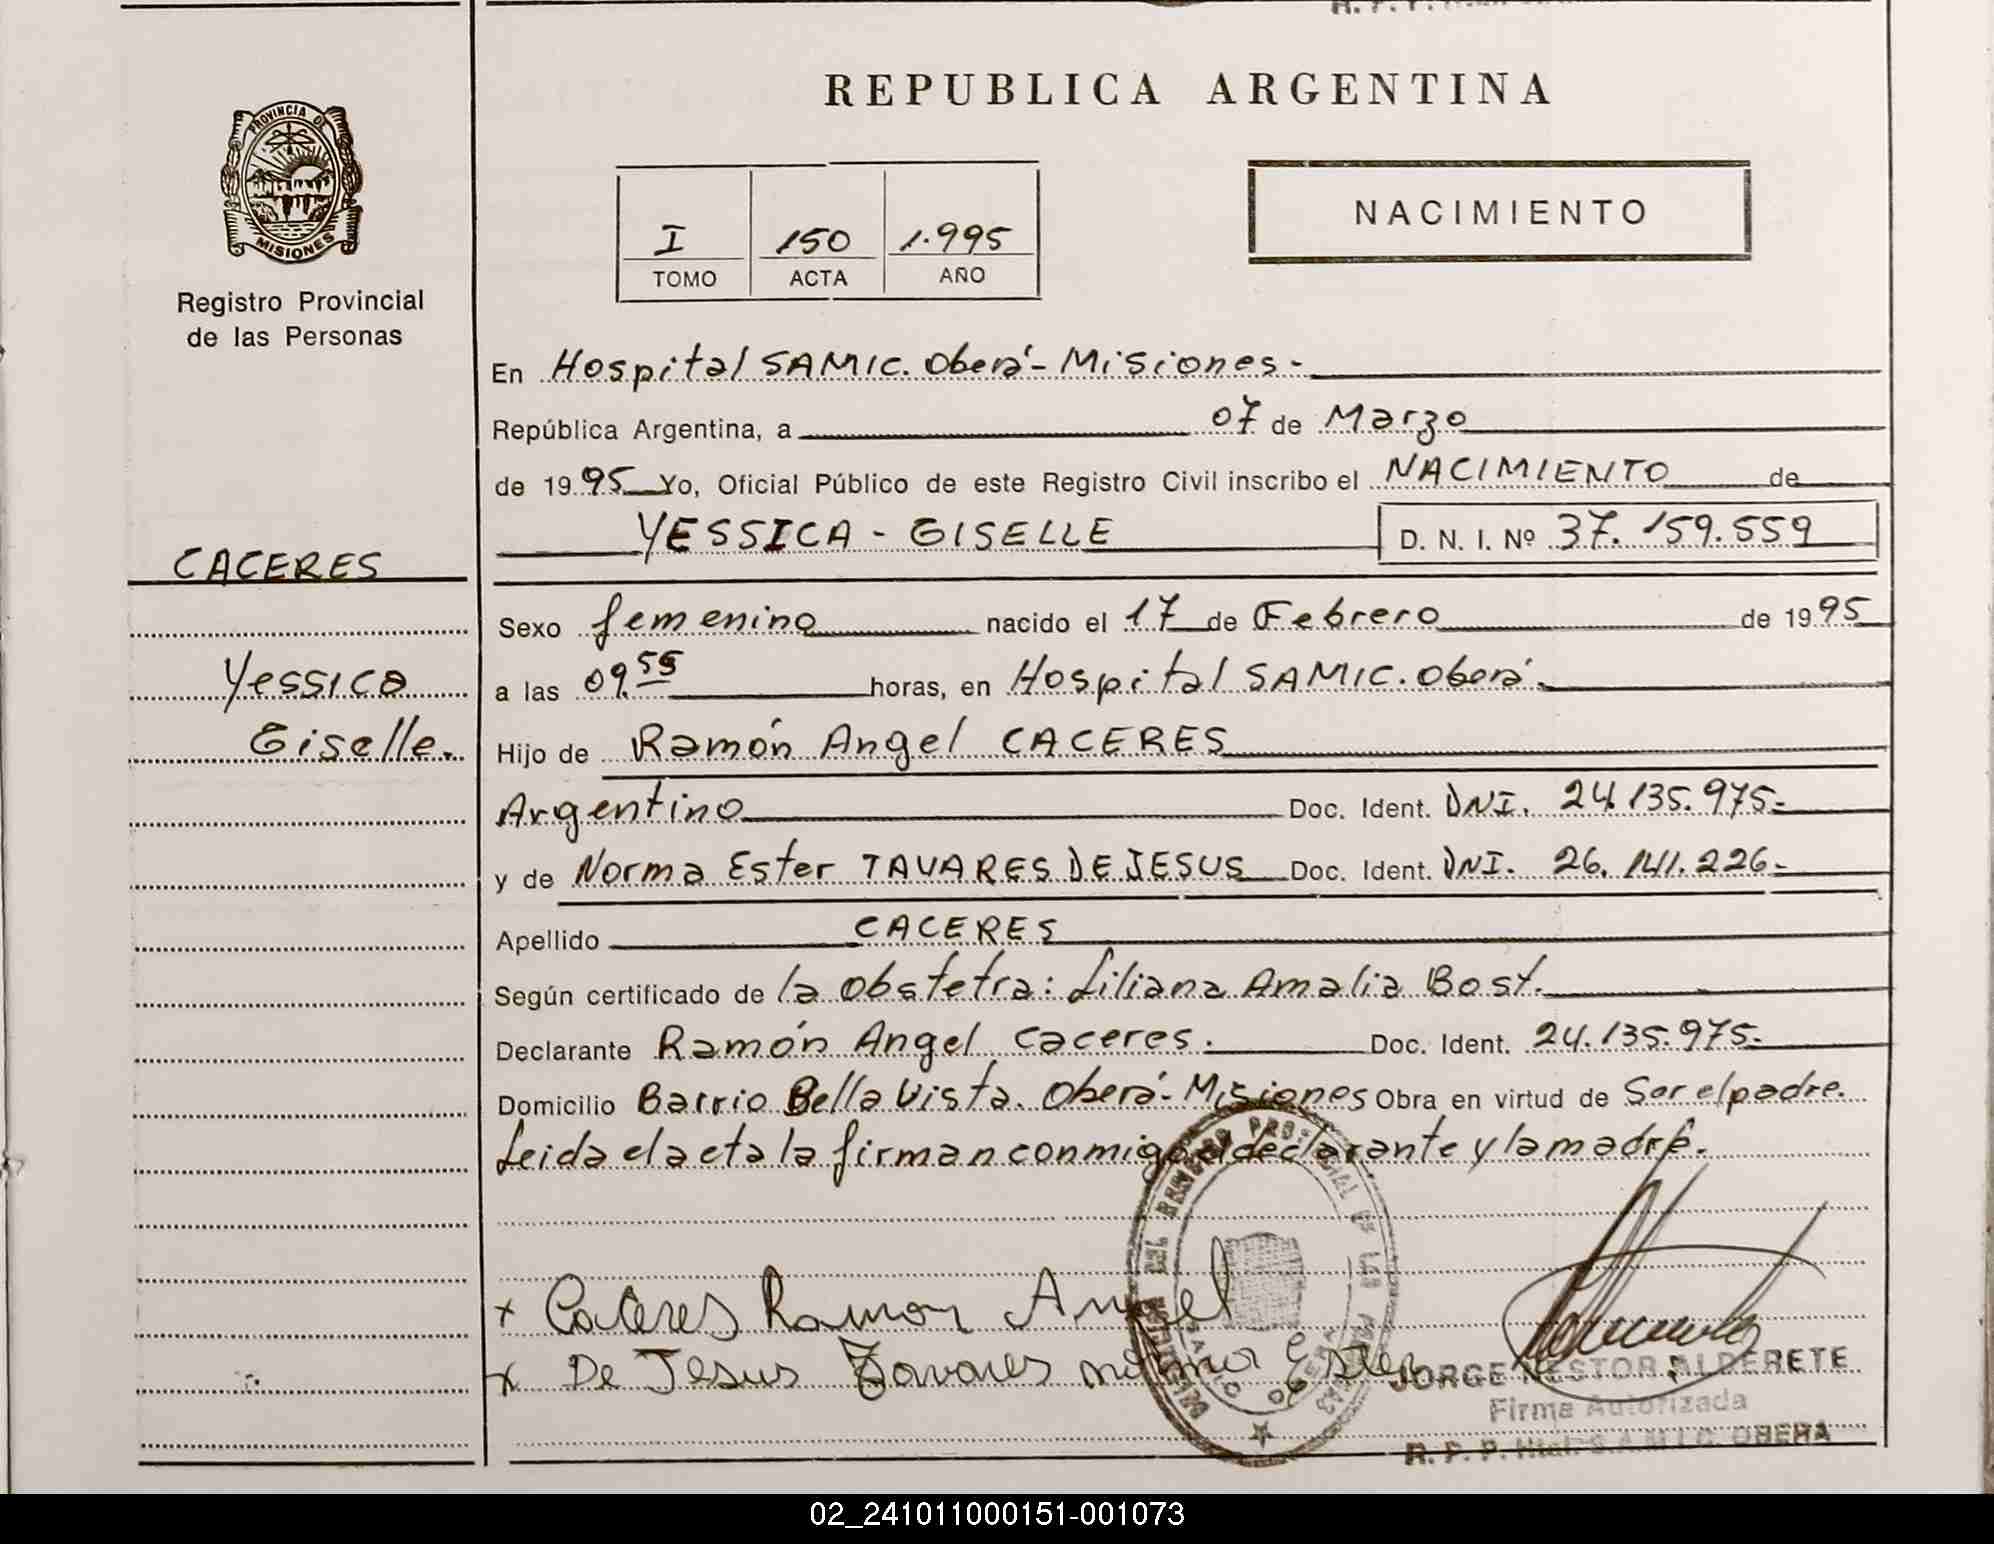 REPUBLICA ARGENTINA
PROVINCIA DE
MISIONES
Registro Provincial
de las Personas
I 150 1.995
TOMO ACTA AÑO
NACIMIENTO
En Hospital SAMIC. Oberá - Misiones -
República Argentina, a 07 de Marzo
de 1995 Yo, Oficial Público de este Registro Civil inscribo el NACIMIENTO de
YESSICA - GISELLE D. N. I. Nº 37.159.559
CACERES
Yessica
Giselle.
Sexo femenino nacido el 17 de Febrero de 1995
a las 09.55 horas, en Hospital SAMIC. Oberá.
Hijo de Ramón Angel CACERES
Argentino Doc. Ident. DNI. 24.135.975-
y de Norma Ester TAVARES DE JESUS Doc. Ident. DNI. 26.141.226-
Apellido CACERES
Según certificado de la obstetra: Liliana Amalia Bost.
Declarante Ramón Angel Caceres. Doc. Ident. 24.135.975-
Domicilio Barrio Bella Vista. Oberá - Misiones Obra en virtud de Ser el padre.
Leida el acta la firman conmigo el declarante y la madre.
x Caceres Ramon Angel
x De Jesus Tavares norma Ester
JORGE NESTOR ALDERETE
Firma Autorizada
R. P. P. Htal. S.A.M.I.C. OBERA
02_241011000151-001073